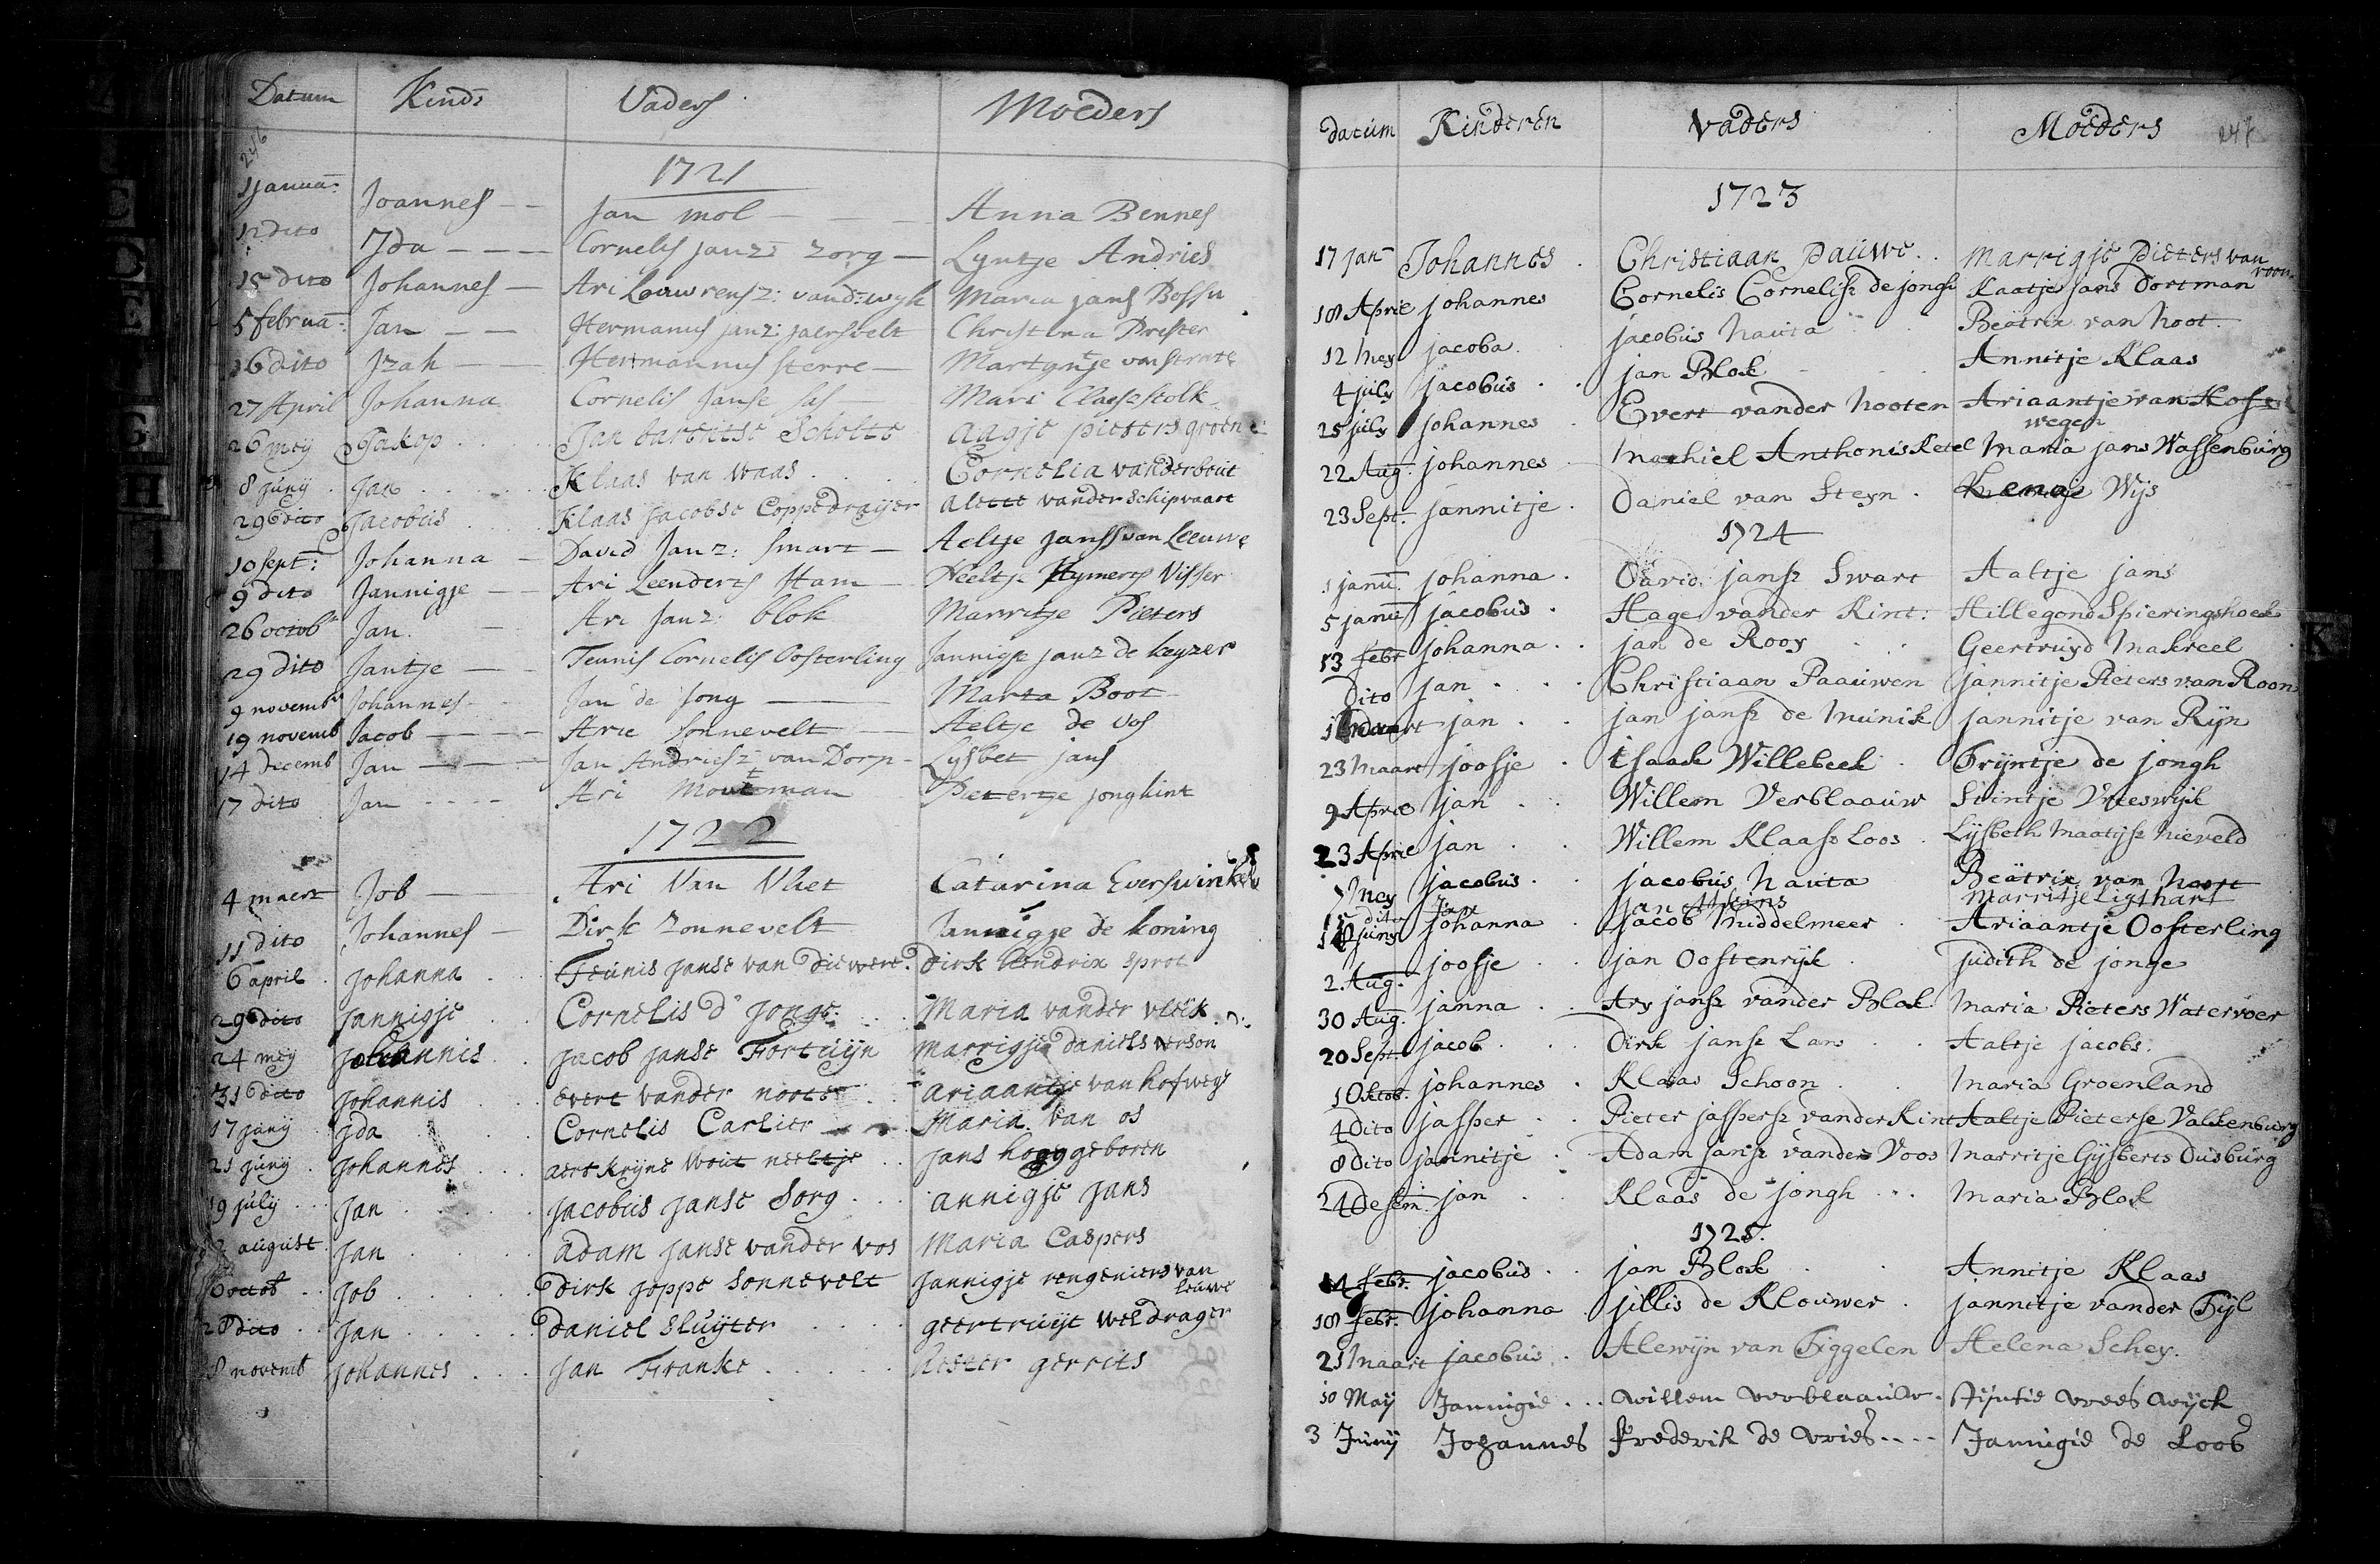 Datum Kinds Vaders Moeders
246
1721
1 janua: Joannes Jan mol Anna Bennes
12 dito Ida Cornelis janz: zorg Lyntje Andries
15 dito Johannes Ari Louwrensz: vand: wyk Maria jans Bossu
5 februa: Jan Hermanus janz: jaersvelt Christina Drester
16 dito Izak Hermannus sterre Martyntje van strate
27 April Johanna Cornelis Janse sas Mari Claesse stolk
26 meÿ Jakop Jan barentse Scholte aagje pieters groen
8 junÿ Jan Klaas van Waas Cornelia vanderbout
29 dito Jacobus Klaas Jacobse Coppedraÿer alette vander schipvaart
10 sept: Johanna David Janz: Swart Aeltje Janss van Leeuwe
9 dito Jannigje Ari Leenderts Ham Neeltje Hymerts Visser
26 octobr Jan Ari Janz: blok Marritje Pieters
29 dito Jantje Teunis Cornelis Oosterling Jannigje janz de keyzer
9 novembr Johannes Jan de Jong Marta Boot
19 novemb Jacob Arie Sonnevelt Aeltje de vos
14 decemb Jan Jan Andriesz van Dorp Lysbet jans
17 dito Jan Ari Moutman Pietertje jongkint
1722
4 maert Job Ari Van Vliet Catarina Everswinkel
11 dito Johannes Dirk zonnevelt Jannigje de koning
6 april Johanna Teunis Janse van Diewert dirk hendrix sprot
29 dito Jannigje Cornelis d' Jonge Maria vander vleÿk
24 meÿ Johannis Jacob Janse Fortuÿn Marrigje daniels verson
31 dito Johannis evert vander noote ariaantje van hofwege
17 junÿ Ida Cornelis Carlier Maria van os
21 junÿ Johannes aert krÿne Wout neeltje Jans hooggeboren
19 julÿ Jan Jacobus Janse Sorg annigje Jans
august Jan adam Janse vander vos Maria Caspers
octob Job Dirk Joppe Sonnevelt Jannigje rengeniers van leuwe
28 dito Jan Daniel Sluÿter geertruÿt weldrager
8 novemb Johannes Jan Franke hester gerrits
datum Kinderen vaders Moeders 247
1723
17 jan Johannes Christiaan pauwe marrigje pieters van roon
18 Aprie johannes Cornelis Cornelisz de jongh Kaatje jans Dortman
12 Mey jacoba jacobus Nauta Beätrix van Noot
4 july jacobus jan Blok Annitje Klaas
25 july johannes Evert vander Nooten Ariaantje van Hoffwegen
22 Aug. johannes Machiel Anthonis Ketel Maria jans Wassenburg
23 Sept. jannitje Daniel van Steyn Lena Wijs
1724
1 janu johanna David jansz Swart Aaltje jans
5 janu jacobus Hage vander Kint: Hillegond Spieringshoek
13 febr johanna jan de Rooy Geertruyd Makreel
dito jan Christiaan Paauwen jannitje Pieters van Roon
Maart jan jan jansz de Munik jannitje van Rijn
23 Maart joosje isaak Willebeek Trijntje de jongh
9 Aprie jan Willem Verblaauw Stintje Vreeswijk
23 Aprie jan Willem Klaasz Loos Lijsbeth Maatijsz Nieveld
7 Mey jacobus jacobus Nauta Beätrix van Noort
dito Jan jan Marritje Ligthart
18 juny johanna jacob Middelmeer Ariaantje Oosterling
2. Aug. joosje jan Oostenrijk judith de jonge
30 Aug. janna Ary jansz vander Blok Maria Pieters Watervoer
20 Sept. jacob Dirk jansz Lans Aaltje jacobs
1 Oktob. johannes Klaas Schoon Maria Groenland
4 Dito jasper Pieter jaspersz vander Kint Aaltje Pieterse Valkenburg
8 Dito jannitje Adam jansz vander Voos Marritje Gijsberts Dusburg
24 Desem. jan Klaas de jongh Maria Blok
1725.
14 febr. jacobus jan Blok Annitje Klaas
18 febr. johanna jillis de Klouwer jannitje vander Tijl
21 Maart jacobus Alewijn van Tiggelen Helena Schey.
10 Maÿ Jannigie Willem verblaauw Stijntie vreeswijck
3 Junÿ Johannes Frederik de vries Jannigie de Loos